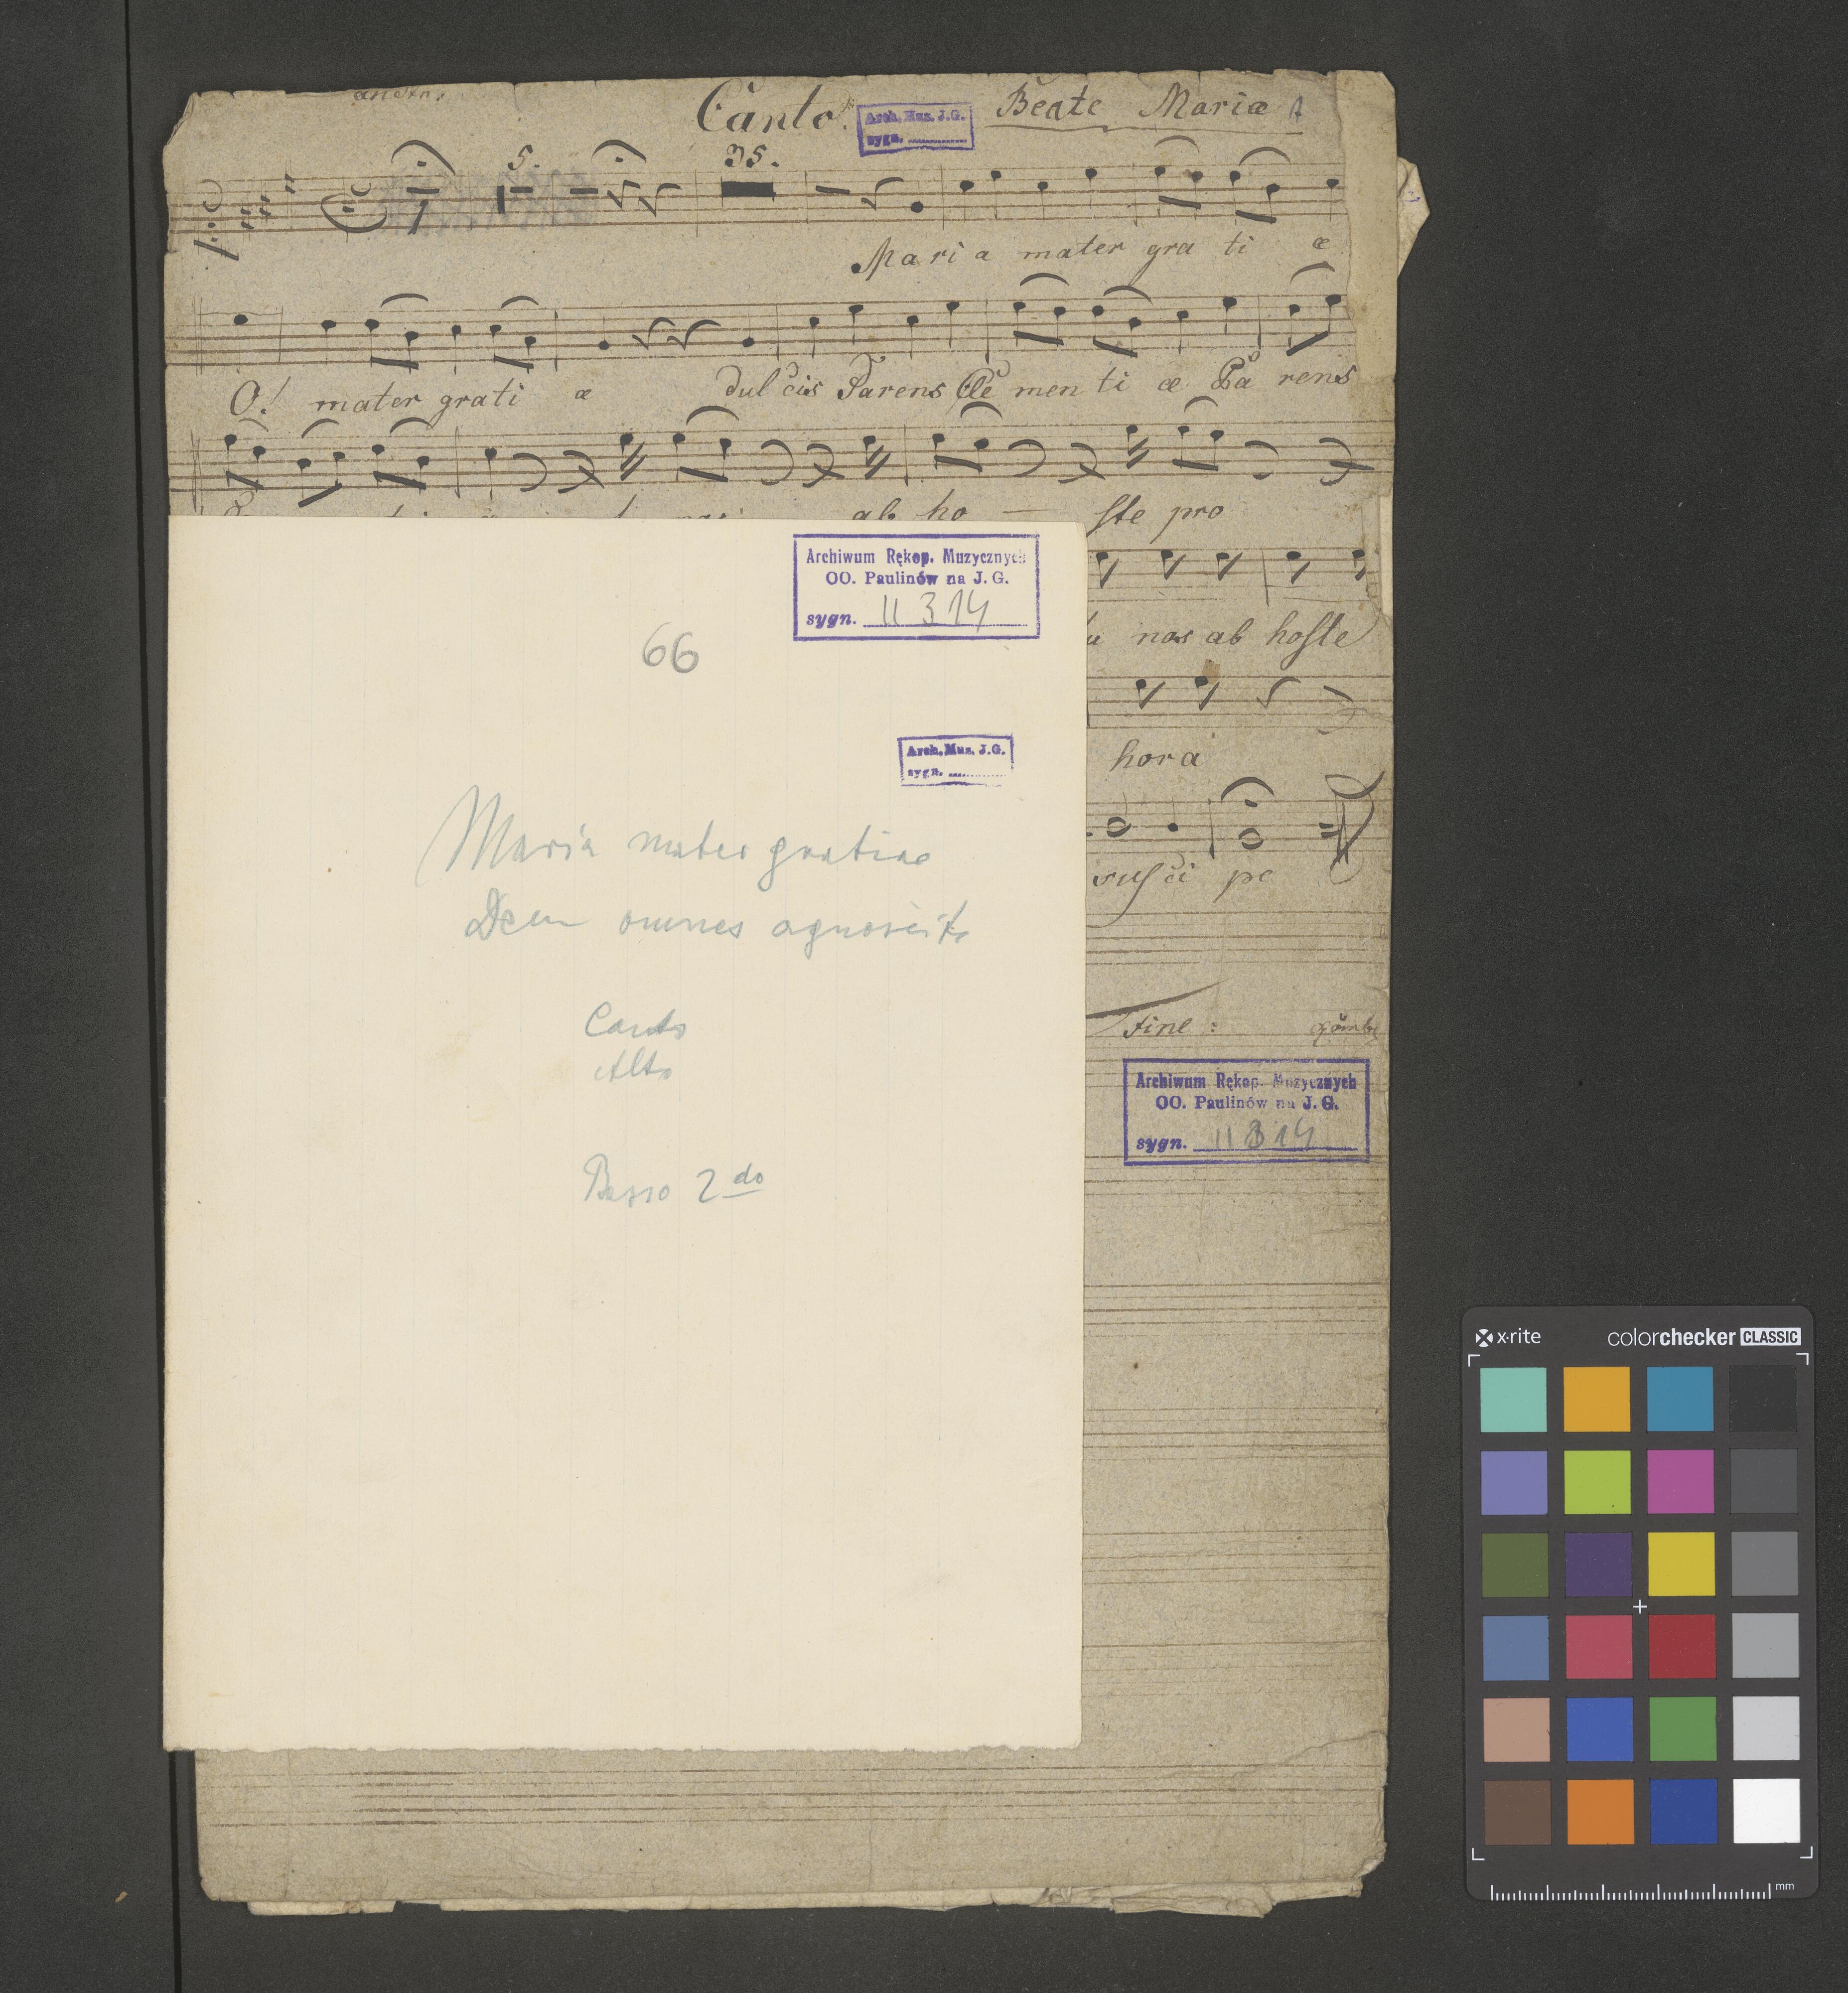 Canto.
Beate Mariæ
Arch. Mus. J.G.
sygn.
5.
35.
Maria mater gra ti æ
O! mater grati æ dulcis Parens Cle men ti æ Pa rens
ab ho — ste pro
nos ab hoste
hora
susci pe
Fine :
Archiwum Rękop. Muzycznych
OO. Paulinów na J. G.
sygn. II 314
Archiwum Rękop. Muzycznych
OO. Paulinów na J. G.
sygn. II 314
66
Arch. Mus. J.G.
sygn.
Maria mater gratiae
Deum omnes agnoscite
Canto
Alto
Basso 2do
x·rite colorchecker CLASSIC
mm